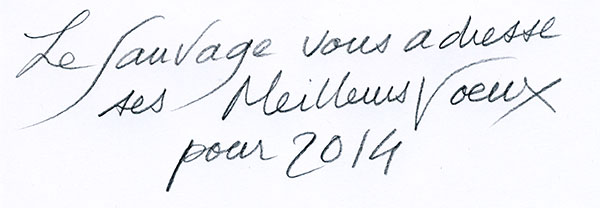 Le Sauvage vous adresse
ses Meilleurs Voeux
pour 2014